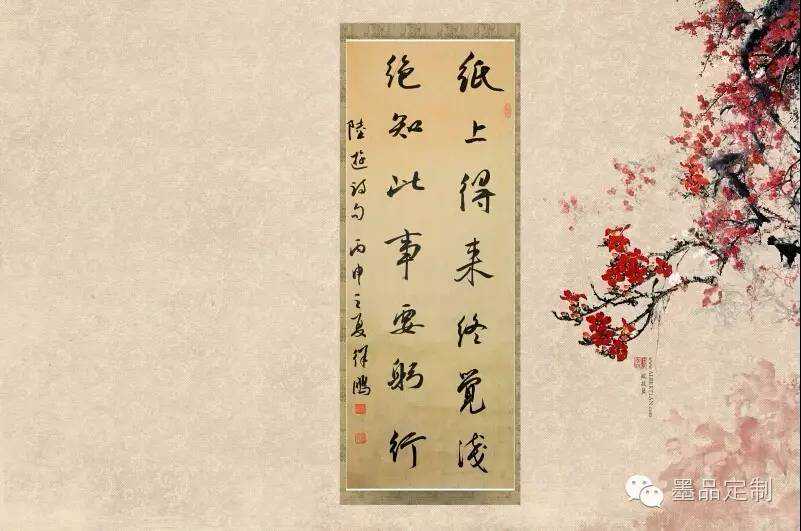 纸上得来终觉浅
绝知此事要躬行
陸遊诗句 丙申之夏
墨品定制